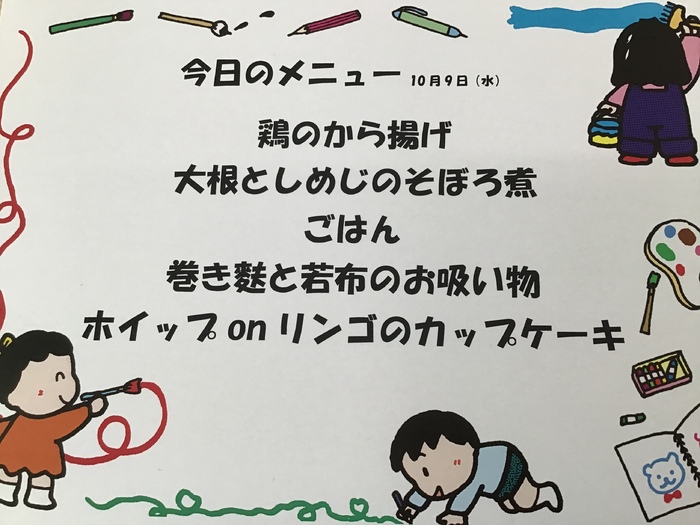 今日のメニュー 10月9日(水)
鶏のから揚げ
大根としめじのそぼろ煮
ごはん
巻き麩と若布のお吸い物
ホイップonリンゴのカップケーキ